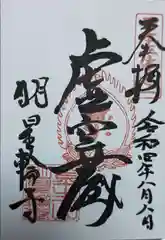 奉拝
令和四年八月八日
虚空蔵
明星輪寺